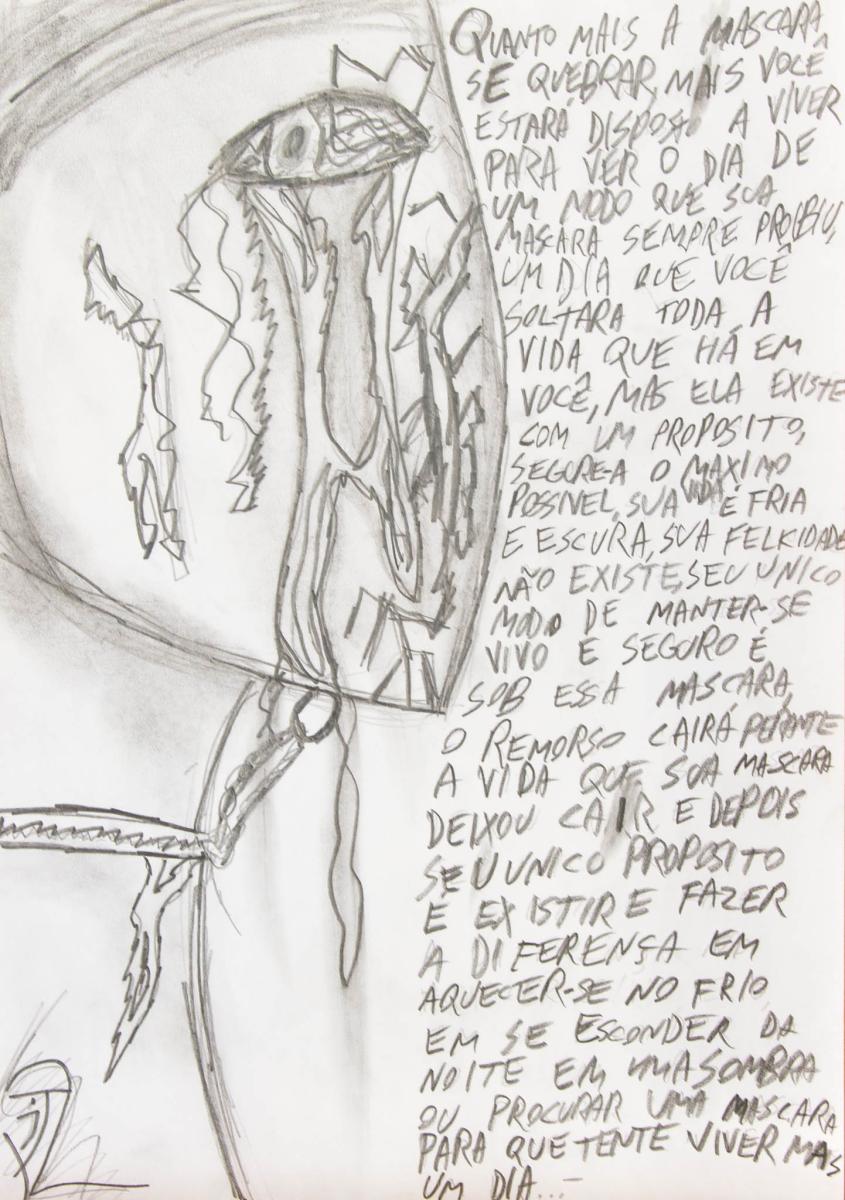 QUANTO MAIS A MASCARA
SE QUEBRAR, MAIS VOCÊ
ESTARÁ DISPOSTO A VIVER
PARA VER O DIA DE
UM MODO QUE SUA
MASCARA SEMPRE PROIBIU,
UM DIA QUE VOCÊ
SOLTARA TODA A
VIDA QUE HÁ EM
VOCÊ, MAS ELA EXISTE
COM UM PROPOSITO,
SEGURE-A O MAXIMO
POSSIVEL, SUA VIDA É FRIA
E ESCURA, SUA FELICIDADE
NÃO EXISTE, SEU UNICO
MODO DE MANTER-SE
VIVO E SEGURO É
SOB ESSA MASCARA,
O REMORSO CAIRÁ PERANTE
A VIDA QUE SUA MASCARA
DEIXOU CAIR E DEPOIS
SEU UNICO PROPOSITO
É EXISTIR E FAZER
A DIFERENÇA EM
AQUECER-SE NO FRIO
EM SE ESCONDER DA
NOITE EM UMA SOMBRA
OU PROCURAR UMA MASCARA
PARA QUE TENTE VIVER MAS
UM DIA...-